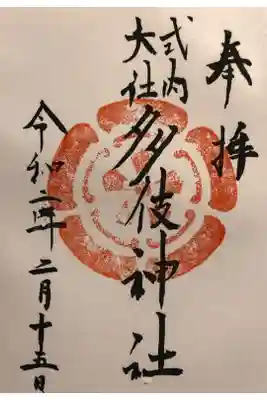 奉拝
式内
大社
多伎神社
令和二年二月十五日